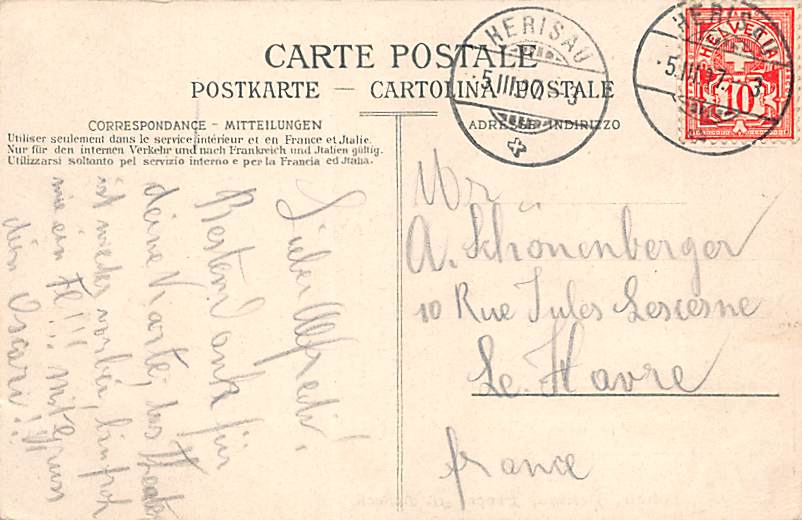 CARTE POSTALE
POSTKARTE — CARTOLINA POSTALE
CORRESPONDANCE - MITTEILUNGEN
Utiliser seulement dans le service intérieur et en France et Jtalie.
Nur für den internen Verkehr und nach Frankreich und Jtalien gültig.
Utilizzarsi soltanto pel servizio interno e per la Francia ed Jtalia.
ADRESSE INDIRIZZO
HERISAU
5.III.07. 3
HERISAU
5.III.07. 3
HELVETIA
10
Lieber Alfred!
Besten Dank für
deine Karte, das Theater
ist wieder vorbei, bin froh
wie ein !!! mit Gruss
dein Oscar!!
Mr
A. Schönenberger
10 Rue Jules Lescesne
Le Havre
france